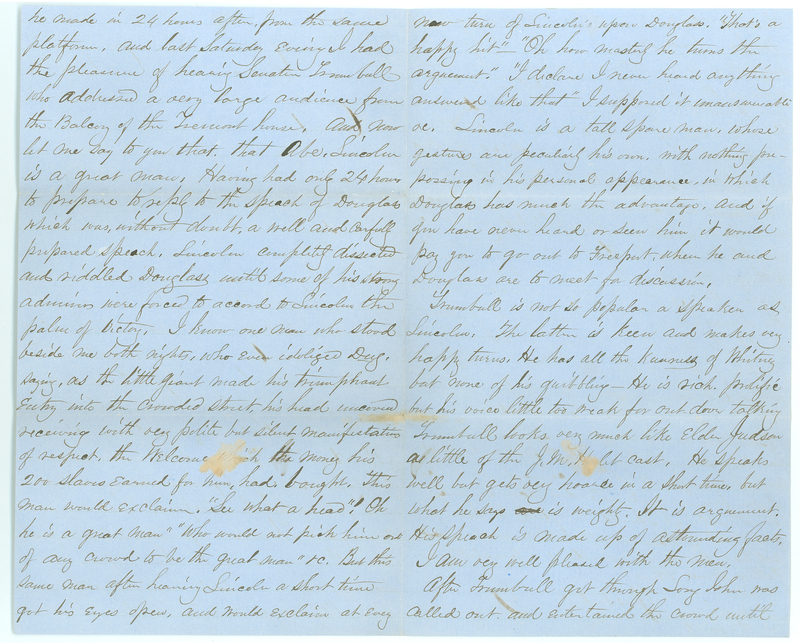 he made in 24 hours after, from the same
platform. and last Saturday Evening I had
the pleasure of hearing Senator Trumbull
who addressed a very large audience from
the Balcony of the Tremont house. And now
let me say to you that. that Abe. Lincoln
is a great man. Having had only 24 hours
to prepare to reply to the Speach of Douglas
which was, without doubt, a well and carfully
prepared speach. Lincoln completly dissected
and riddled Douglass until some of his strong
admirers were forced to accord to Lincoln the
palm of Victory. I know one man who stood
beside me both nights, who even idolized Dug.
saying, as the little giant made his triumphant
Entry into the crowded street, his head uncovered
receiving with very polite but silent manifestation
of respect, the Welcome which the money his
200 slaves Earned for him, had bought. This
man would exclaim. "See what a head"! "Oh
he is a great man" "Who would not pick him out
of any crowd to be the great man" &c. But this
same man after hearing Lincoln a short time
got his Eyes open, and would Exclaim at Evey
new turn of Lincoln's upon Douglass. "That's a
happy hit" "Oh how masterly he turns the
arguement." "I declare I never heard anything
answered like that" I supposed it unanswerable
&c. Lincoln is a tall spare man, whose
gesture are peculiarly his own. with nothing pre-
possing in his personal appearance, in which
Douglas has much the advantage. and if
you have never heard or seen him it would
pay you to go out to Freeport, when he and
Douglass are to meet for discussion.
Trumbull is not so popular a speaker as
Lincoln. The latter is Keen and makes very
happy turns. He has all the Kunness of Whitney
but none of his quibbling — He is rich. prolific
but his voice little too weak for out door talking
Trumbull looks very much like Elder Judson
a little of the J. M. cast. He speaks
well but gets very hoarse in a short time, but
what he says is weighty. It is arguement.
His speach is made up of astounding facts.
I am very well pleased with the man.
After Trumbull got through Long John was
called out. and Entertained the crowd until